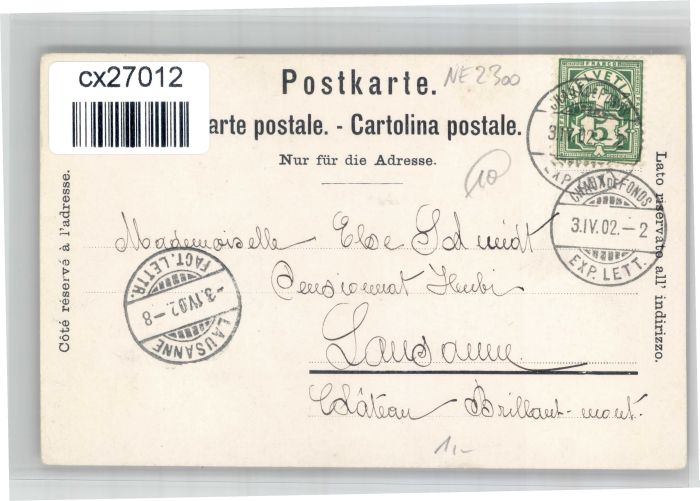 cx27012
NE 2300
Postkarte.
arte postale. - Cartolina postale.
Nur für die Adresse.
10
FRANCO
HELVETIA
5
3.IV.02
EXP.
CHAUX DE FONDS
3.IV.02.-2
EXP. LETT.
Côté réservé à l'adresse.
Lato riservato all' indirizzo.
Mademoiselle Else Schmidt
Pensionnat
Lausanne
Château Brillant-mont.
LAUSANNE
-3.IV.02.-8
FACT. LETTR.
1,-